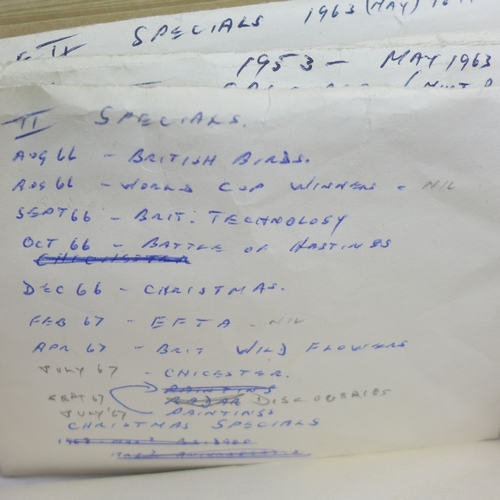 II SPECIALS 1963 (MAY)
1953 - MAY 1963
II SPECIALS.
AUG 66 - BRITISH BIRDS.
AUG 66 - WORLD CUP WINNERS - NIL
SEPT 66 - BRIT: TECHNOLOGY
OCT 66 - BATTLE OF HASTINGS
CHICHESTER
DEC 66 - CHRISTMAS.
FEB 67 - EFTA - NIL
APR 67 - BRIT WILD FLOWERS
JULY 67 - CHICESTER.
PAINTING
SEPT 67 RADAR DISCOVERIES
JULY '67 - PAINTINGS
CHRISTMAS SPECIALS